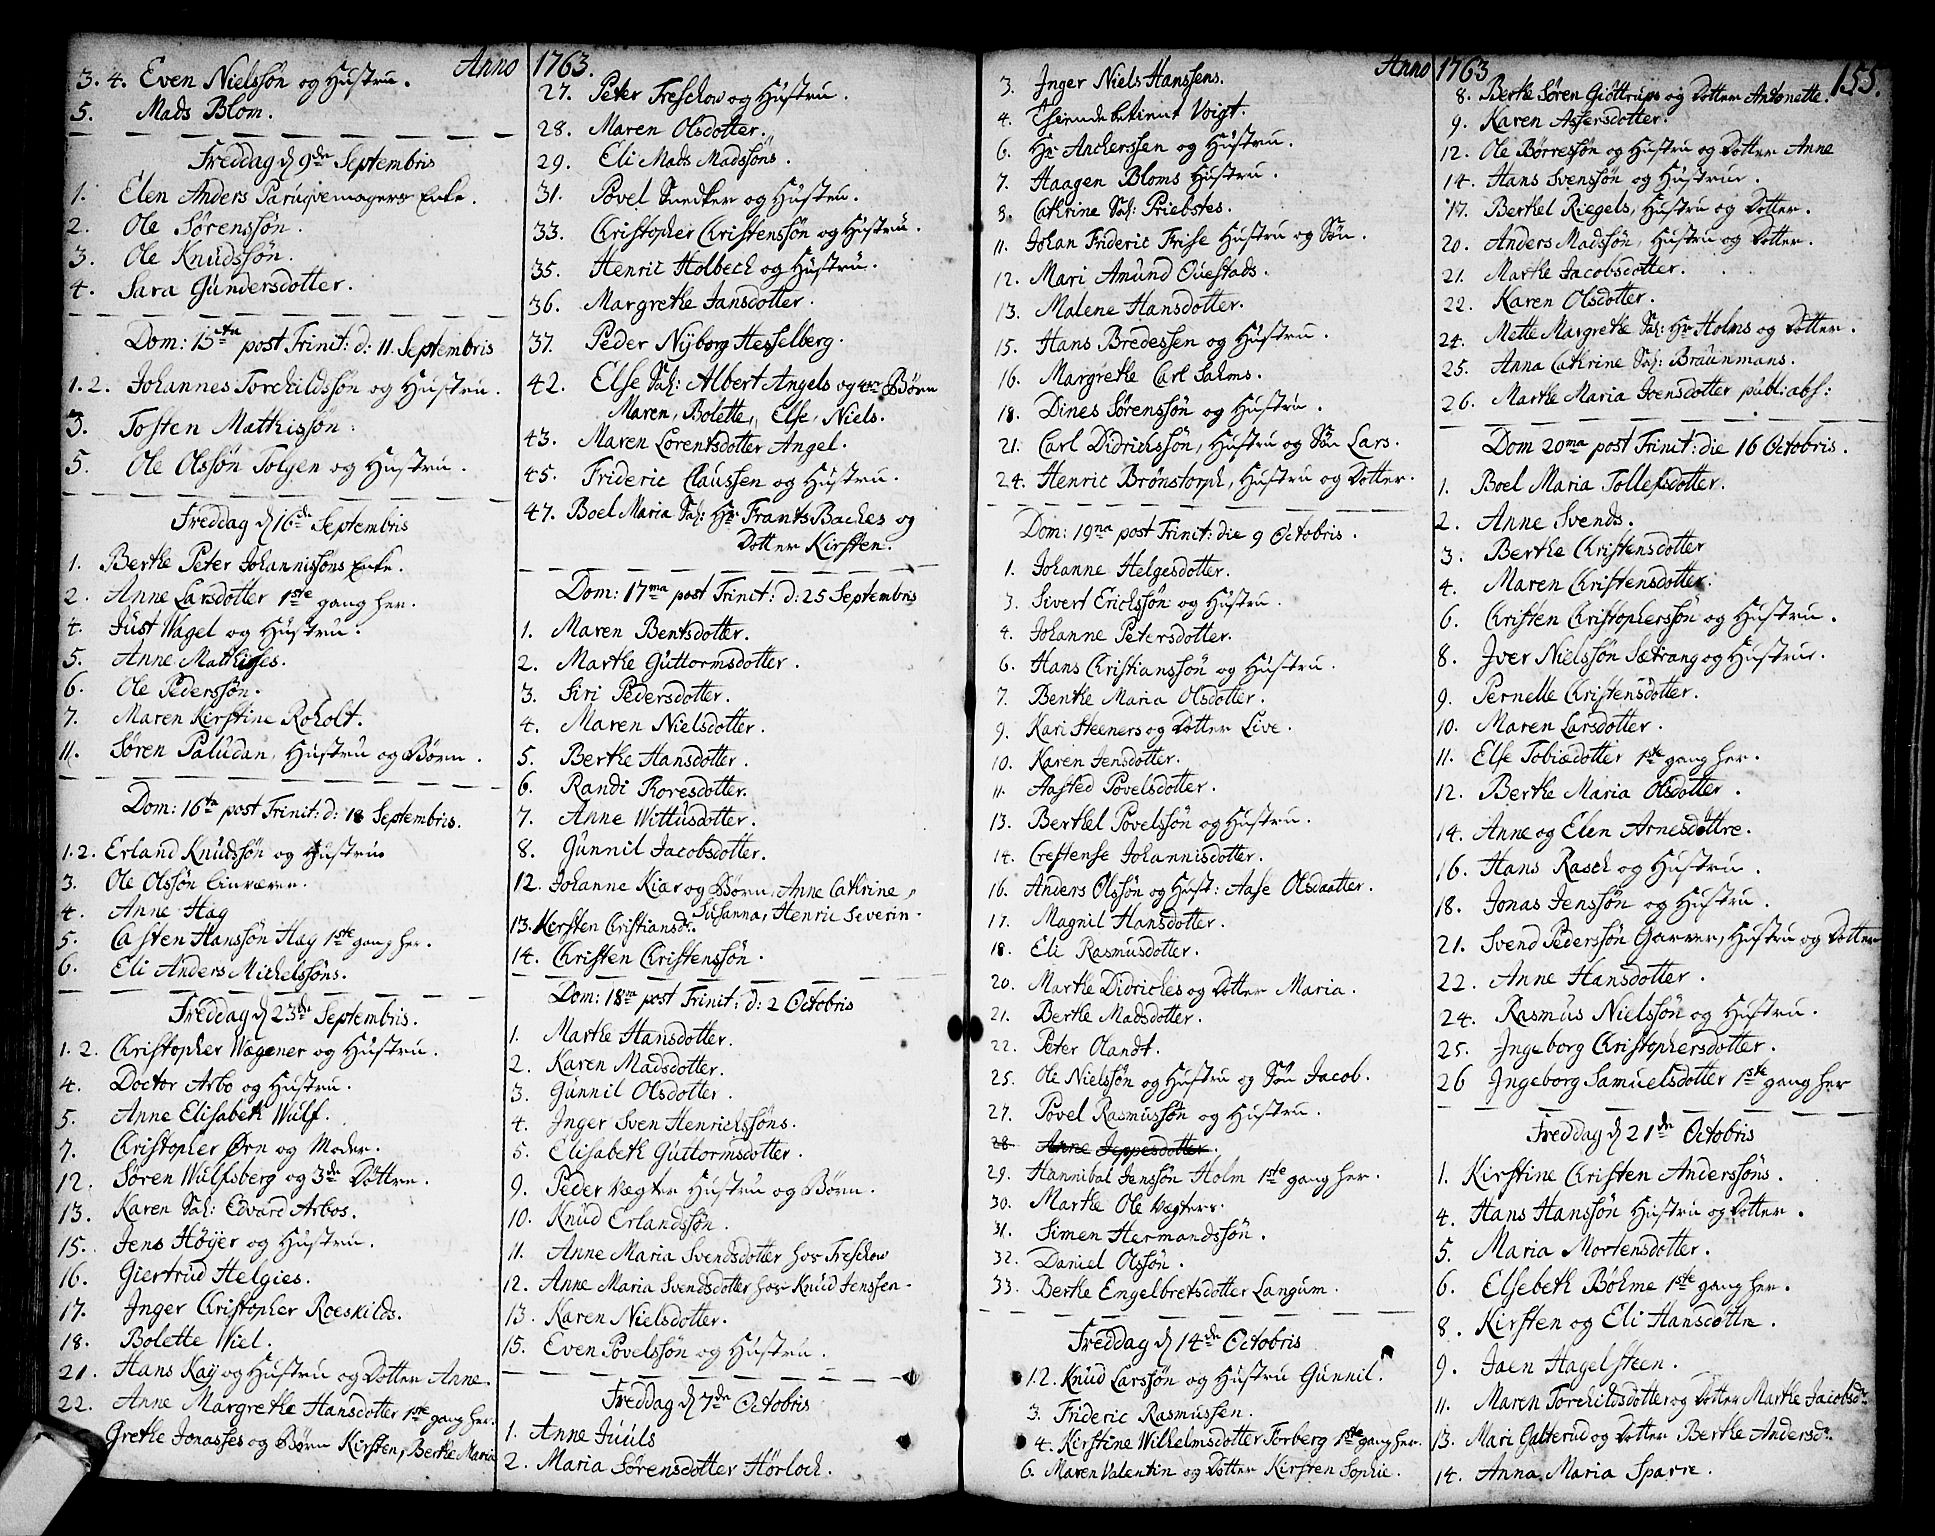 Anno 1763.
3. 4. Even Nielssøn og Hustru.
5. Mads Blom.
Freddag d 9de Septembris
1. Elen Anders Paruqvemagers Enke.
2. Ole Sørenssøn.
3. Ole Knudssøn.
4. Sara Gundersdotter.
Dom: 15ta post Trinit: d: 11 Septembris
1. 2. Johannes Torchildssøn og Hustru.
3. Tosten Mathissøn.
5. Ole Olssøn Tolgen og Hustru.
Freddag d 16de Septembris
1. Berthe Peter Johannissøns Enke.
2. Anne Larsdotter 1ste gang her.
4. Just Wagel og Hustru.
5. Anne Mathisses.
6. Ole Pederssøn.
7. Maren Kirstine Roholt.
11. Søren Paludan, Hustru og Børn.
Dom: 16ta post Trinit: d: 18 Septembris.
1. 2. Erland Knudssøn og Hustru
3. Ole Olssøn
4. Anne Hag
5. Casten Hanssøn Hag 1ste gang her.
6. Eli Anders Michelssøns.
Freddag d 23de Septembris.
1. 2. Christopher Wægener og Hustru.
4. Doctor Arbo og Hustru.
5. Anne Elisabeth Wulf.
7. Christopher Ørn og Moder.
12. Søren Wulfsberg og 3de Døttre.
13. Karen Sal: Edvard Arbos.
15. Jens Høyer og Hustru.
16. Giertrud Helgies.
17. Inger Christopher Roeskilds.
18. Bolette Wiel.
21. Hans Kay og Hustru og Dotter Anne.
22. Anne Margrethe Hansdotter 1ste gang her.
Grethe Jonasses og Børn Kirsten, Berthe Maria
27. Peter Treschow og Hustru.
28. Maren Olsdotter.
29. Eli Mads Madssøns.
31. Povel Snedker og Hustru.
33. Christopher Christenssøn og Hustru.
35. Henric Holbech og Hustru.
36. Margrethe Jansdotter.
37. Peder Nyborg Hesselberg.
42. Else Sal: Albert Angels og Børn
Maren, Bolette, Else, Niels.
43. Maren Lorentsdotter Angel.
45. Frideric Claussen og Hustru.
47. Boel Maria Sal: Hr: Frants Baches og
Dotter Kirsten.
Dom: 17ma post Trinit: d: 25 Septembris
1. Maren Bentsdotter.
2. Marthe Guttormsdotter.
3. Siri Pedersdotter.
4. Maren Nielsdotter.
5. Berthe Hansdotter.
6. Randi Thoresdotter.
7. Anne Wittusdotter.
8. Gunnil Jacobsdotter.
12. Johanne Kiær og Børn, Anne Cathrine,
Susanna, Henric Severin.
13. Kersten Christiansdr.
14. Christen Christenssøn.
Dom: 18va post Trinit: d: 2 Octobris
1. Marthe Hansdotter.
2. Karen Madsdotter.
3. Gunnil Olsdotter.
4. Inger Sven Henrichssøns.
5. Elisabeth Guttormsdotter.
9. Peder Vægter Hustru og Børn.
10. Knud Erlandssøn.
11. Anne Maria Svendsdotter hos Treschow
12. Anne Maria Svendsdotter hos Knud Jenssen.
13. Karen Nielsdotter.
15. Even Povelssøn og Hustru.
Freddag d 7de Octobris
1. Anne Juuls
2. Maria Sørensdotter Hørloch.
Anno 1763
155.
3. Inger Niels Hanssens.
4. Voigt.
6. Hr Ancherssen og Hustru.
7. Haagen Bloms Hustru.
8. Cathrine Sal: Priebstes.
11. Johan Frideric Frise Hustru og Søn.
12. Mari Amund Questads.
13. Malene Hansdotter.
15. Hans Bredessen og Hustru.
16. Margrethe Carl Salms.
18. Dines Sørenssøn og Hustru.
21. Carl Didrichssøn, Hustru og Søn Lars.
24. Henric Brønstorph, Hustru og Dotter.
Dom: 19na post Trinit: die 9 Octobris.
1. Johanne Helgesdotter.
3. Sivert Erichssøn og Hustru.
4. Johanne Petersdotter.
6. Hans Christianssøn og Hustru.
7. Benthe Maria Olsdotter.
9. Kari Steeners og Dotter Live.
10. Karen Jensdotter.
11. Aasted Povelsdotter.
13. Berthel Povelssøn og Hustru.
14. Crestense Johannisdotter.
16. Anders Olssøn og Hust: Aase Olsdaatter.
17. Magnil Hansdotter.
18. Eli Rasmusdotter.
20. Marthe Didriches og Dotter Maria.
21. Berthe Madsdotter.
22. Peter Olandt.
25. Ole Nielssøn og Hustru og Søn Jacob.
27. Povel Rasmussøn og Hustru.
28 Anne Jeppesdotter.
29. Hannibal Jenssøn Holm 1ste gang her.
30. Marthe Ole Vægters.
31. Simen Hermandssøn.
32. Daniel Olssøn.
33. Berthe Engelbretsdotter Langum.
Freddag d 14de Octobris
1. 2. Knud Larssøn og Hustru Gunnil.
3. Frideric Rasmussen.
4. Kirstine Wilhelmsdotter Forberg 1ste gang her.
6. Maren Valentin og Dotter Kirsten Sophie.
8. Berthe Søren Giøttrups og Dotter Antonette.
9. Karen Assersdotter.
12. Ole Børressøn og Hustru og Dotter Anne
14. Hans Svenssøn og Hustrue.
17. Berthel Riegels, Hustru og Dotter.
20. Anders Madssøn, Hustru og Dotter.
21. Marthe Jacobsdotter.
22. Karen Olsdotter.
24. Mette Margrethe Sal: Hr Holms og Dotter.
25. Anna Cathrine Sal: Braunmans.
26. Marthe Maria Ivensdotter publ: abs:
Dom 20ma post Trinit: die 16 Octobris.
1. Boel Maria Tollefsdotter.
2. Anne Svends.
3. Berthe Christensdotter
4. Maren Christensdotter.
6. Christen Christopherssøn og Hustru.
8. Iver Nielssøn Sætrang og Hustrue.
9. Pernelle Christensdotter.
10. Maren Larsdotter.
11. Else Tobiædotter 1ste gang her.
12. Berthe Maria Olsdotter.
14. Anne og Elen Arnesdøttre.
16. Hans Rasch og Hustru.
18. Jonas Jenssøn og Hustru.
21. Svend Pederssøn Garver, Hustru og Dotter
22. Anne Hansdotter.
24. Rasmus Nielssøn og Hustru.
25. Ingeborg Christophersdotter.
26 Ingeborg Samuelsdotter 1ste gang her
Freddag d 21de Octobris
1. Kirstine Christen Anderssøns.
4. Hans Hanssøn Hustru og Dotter.
5. Maria Mortensdotter.
6. Elsebeth Bøhme 1ste gang her.
8. Kirsten og Eli Hansdøttre.
9. Jaen Hagelsteen.
11. Maren Torchildsdotter og Dotter Marthe Jacobsdr
13. Mari Galterud og Dotter Berthe Andersdr.
14. Anna Maria Sparre.